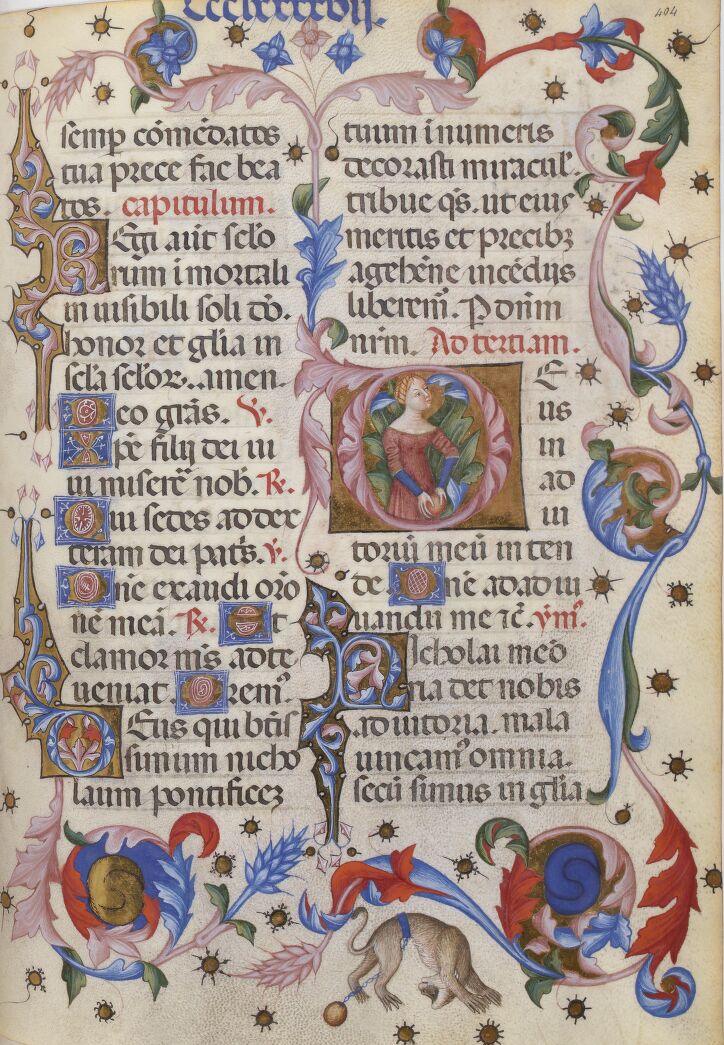 Cccclxxxxvii.
404
semp cōmēdatos
tua prece fac bea
tos. capitulum.
Regi aūt sclo
rum i mortali
in uisibili soli dō.
honor et glia in
scla sclor. amen.
Deo grās. V.
Xpē filij dei ui
ui miserē nob. R.
Qui sedes ad dex
teram dei patis. V.
Dnē exaudi orō
nē meā. R. Et
clamor ms ad te
ueniat. Orem.
Deus qui btīs
simum nicho
laum pontificez
tuum i numeris
decorasti miracul.
tribue qs. ut eius
meritis et precibz
a gehēne incēdijs
liberem. P dnm
nrm. Ad tertiam.
DE
us
in
ad
iu
toriū meū in ten
de. Dnē ad adiu
uandū me rc. ym.
Nicholai meō
ria det nobis
aduitoria. mala
uincam omnia.
secū simus in glia